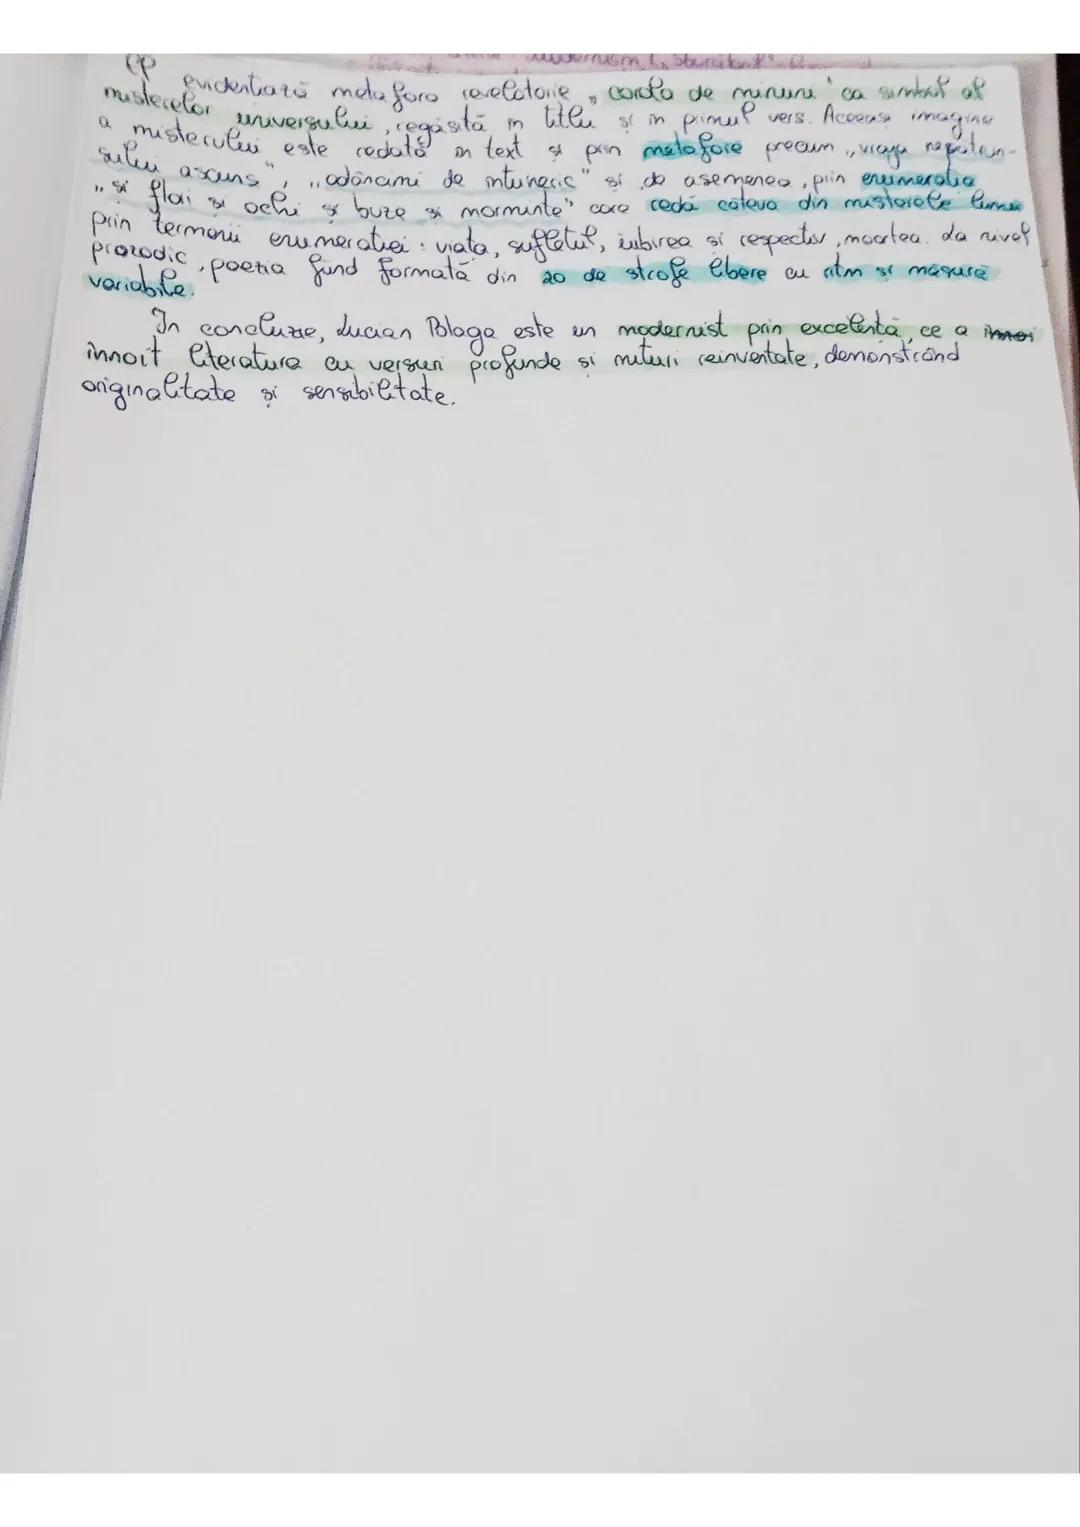 evidențiază metafora revelatorie „corola de minuni" ca simbol al
misterelor universului, regăsită în titlu și în primul vers. Aceeași imagine
a misterului este redată în text și prin metafore precum „vraja nepătrun-
sului ascuns", „adâncimi de întuneric" și, de asemenea, prin enumerația
„și flori și ochi și buze și morminte" care redă câteva din misterele lumii
prin termenii enumerației: viața, sufletul, iubirea și respectiv, moartea. La nivel
prozodic, poezia fiind formată din 20 de strofe libere cu ritm și măsură
variabile.
În concluzie, Lucian Blaga este un modernist prin excelență, ce a
înnoit literatura cu versuri profunde și mituri reinventate, demonstrând
originalitate și sensibilitate.